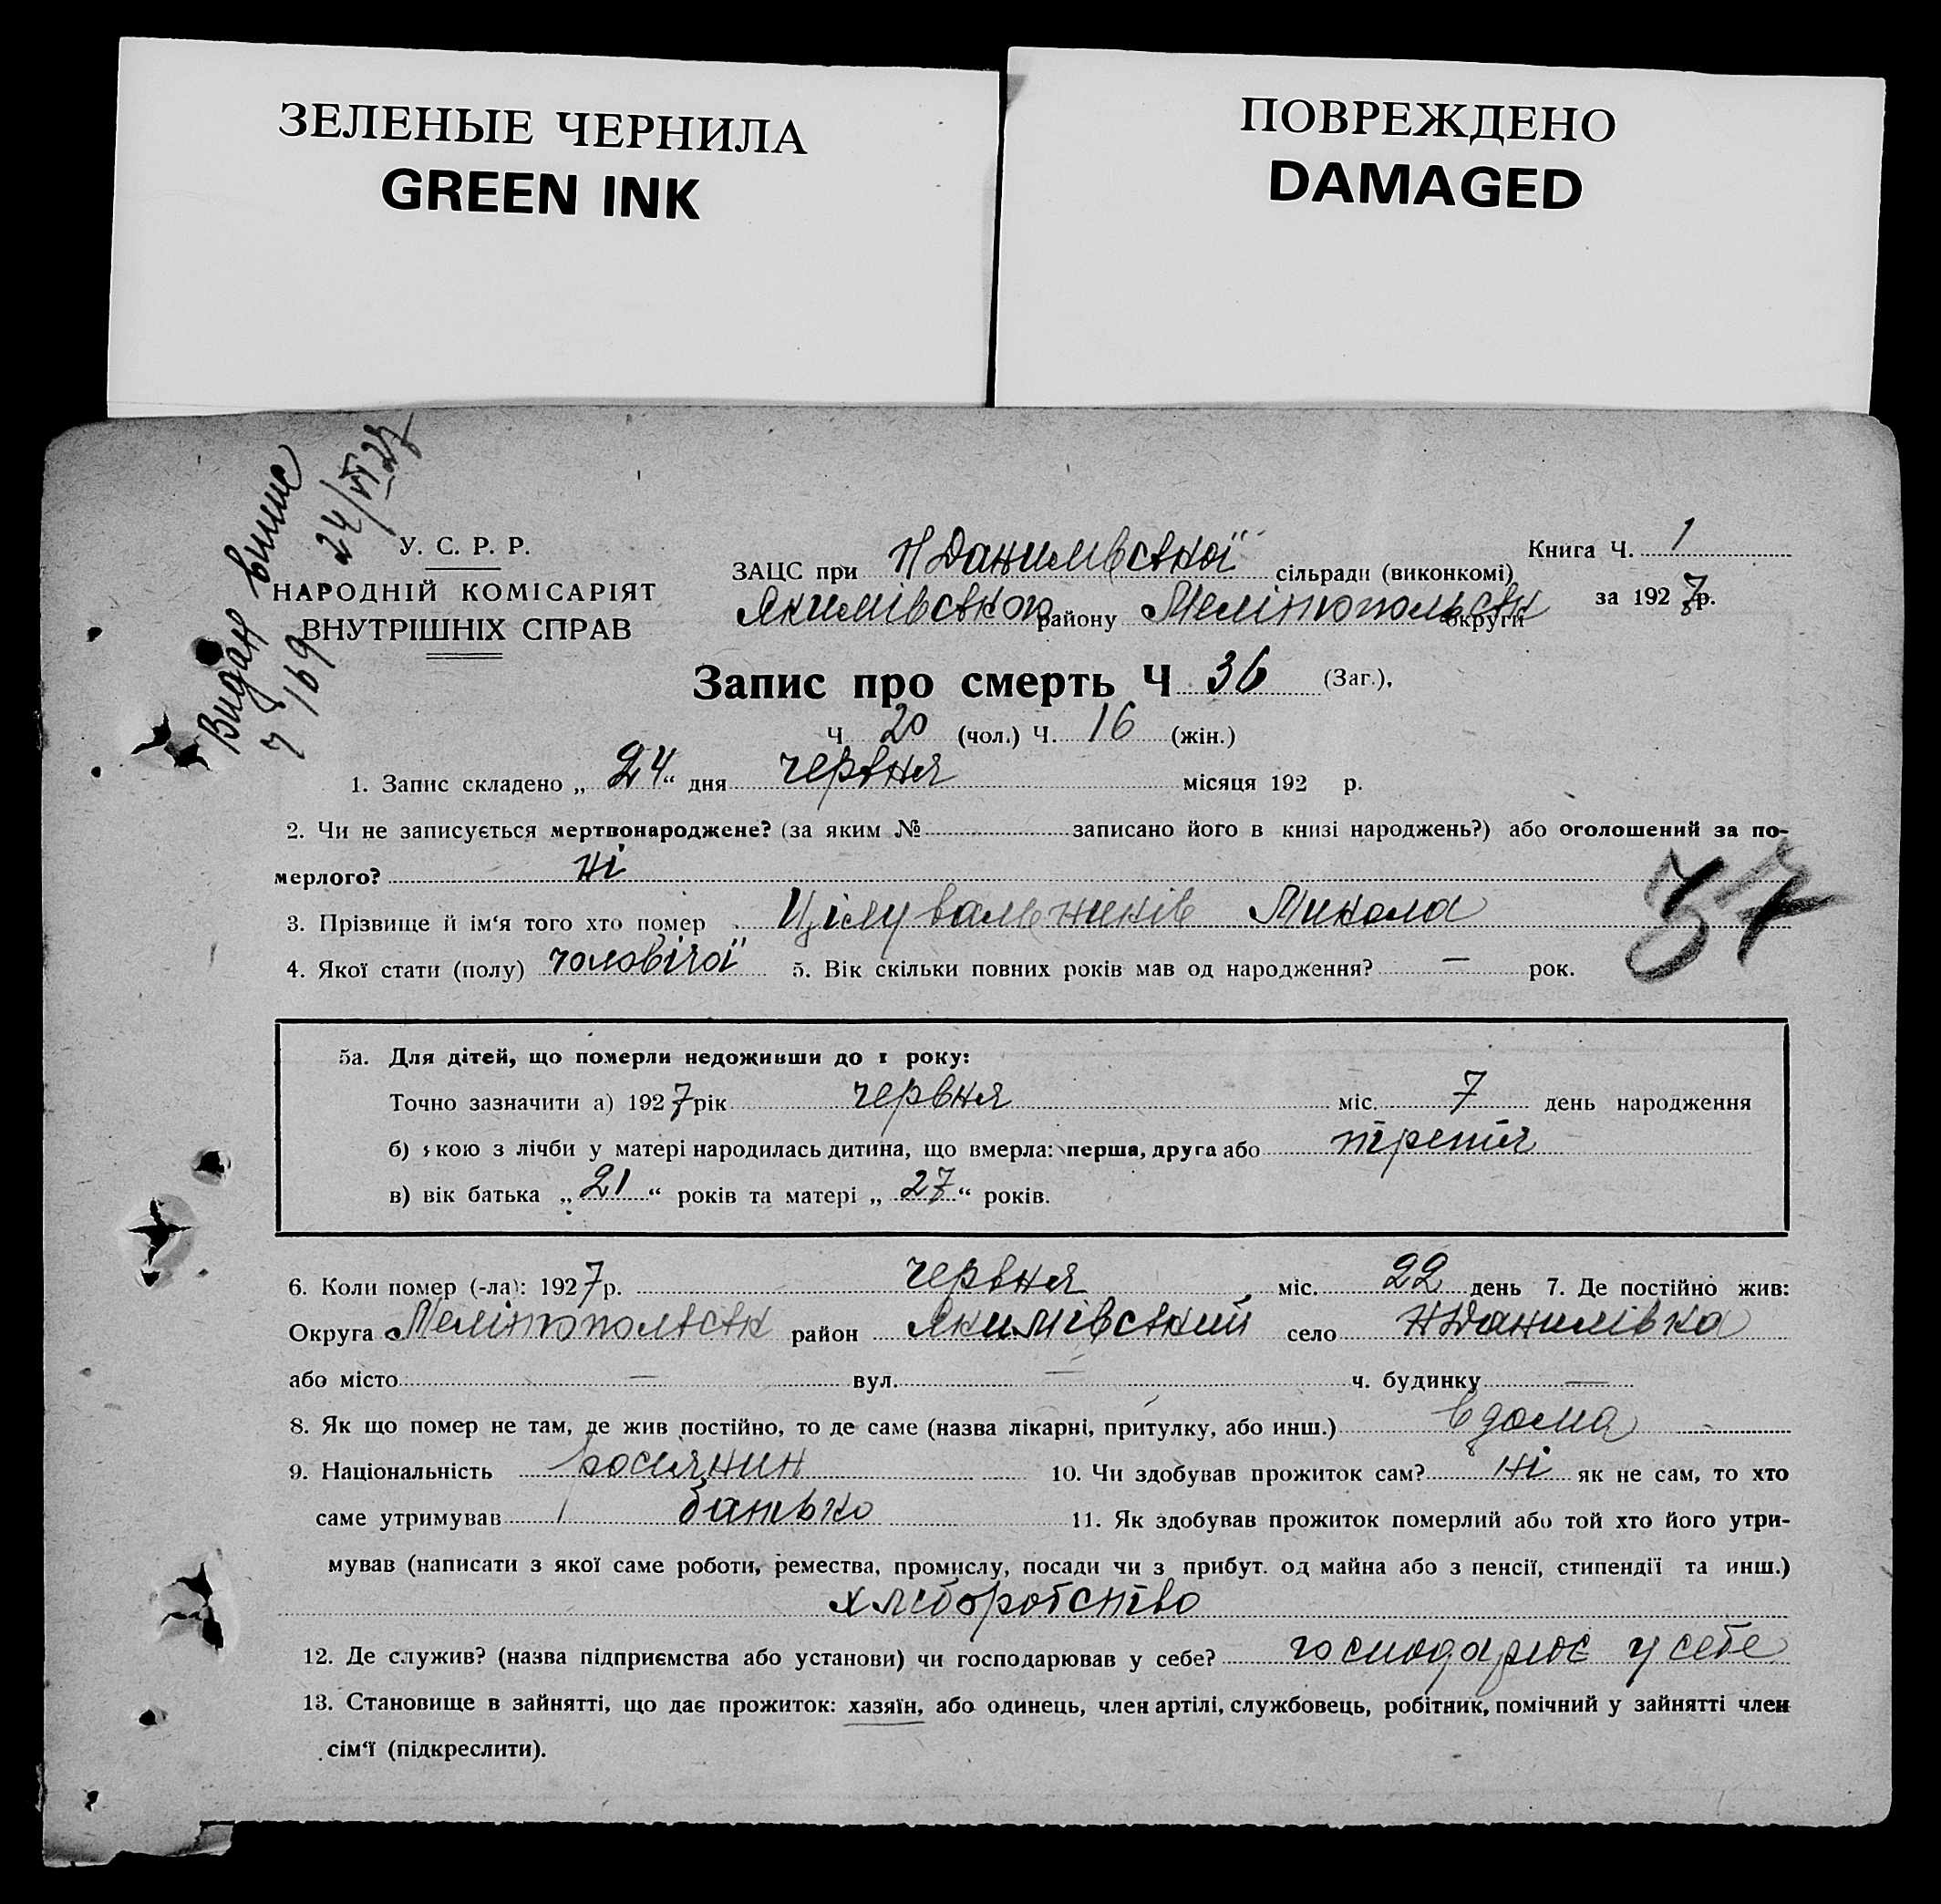 ЗЕЛЕНЫЕ ЧЕРНИЛА
GREEN INK
ПОВРЕЖДЕНО
DAMAGED
Видан випис
7/169 24/VI 27
У. С. Р. Р.
НАРОДНІЙ КОМІСАРІЯТ
ВНУТРІШНІХ СПРАВ
Книга Ч. 1
за 1927 р.
ЗАЦС при НДанилівської сільради (виконкомі)
Якимівського району Мелітопольськ округи
Запис про смерть Ч 36 (Заг.),
Ч 20 (чол.) Ч. 16 (жін.)
1. Запис складено „ 24 “ дня червня місяця 192 р.
2. Чи не записується мертвонароджене? (за яким № записано його в книзі народжень?) або оголошений за по-
мерлого? ні
37
3. Прізвище й ім‘я того хто помер Цілувальників Микола
4. Якої стати (полу) чоловічої 5. Вік скільки повних років мав од народження? — рок.
5а. Для дітей, що померли недоживши до 1 року:
Точно зазначити а) 1927 рік червня міс. 7 день народження
б) якою з лічби у матері народилась дитина, що вмерла: перша, друга або третя
в) вік батька „ 21 “ років та матері „ 27 “ років.
6. Коли помер (-ла): 1927 р. червня міс. 22 день 7. Де постійно жив:
Округа Мелітопольськ район Якимівський село НДанилівка
або місто — вул. — ч. будинку —
8. Як що помер не там, де жив постійно, то де саме (назва лікарні, притулку, або инш.) вдома
9. Національність росіянин 10. Чи здобував прожиток сам? ні як не сам, то хто
саме утримував батько 11. Як здобував прожиток померлий або той хто його утри-
мував (написати з якої саме роботи, ремества, промислу, посади чи з прибут. од майна або з пенсії, стипендії та инш.)
хліборобство
12. Де служив? (назва підприємства або установи) чи господарював у себе? господарює у себе
13. Становище в зайнятті, що дає прожиток: хазяїн, або одинець, член артілі, службовець, робітник, помічний у зайнятті член
сім‘ї (підкреслити).